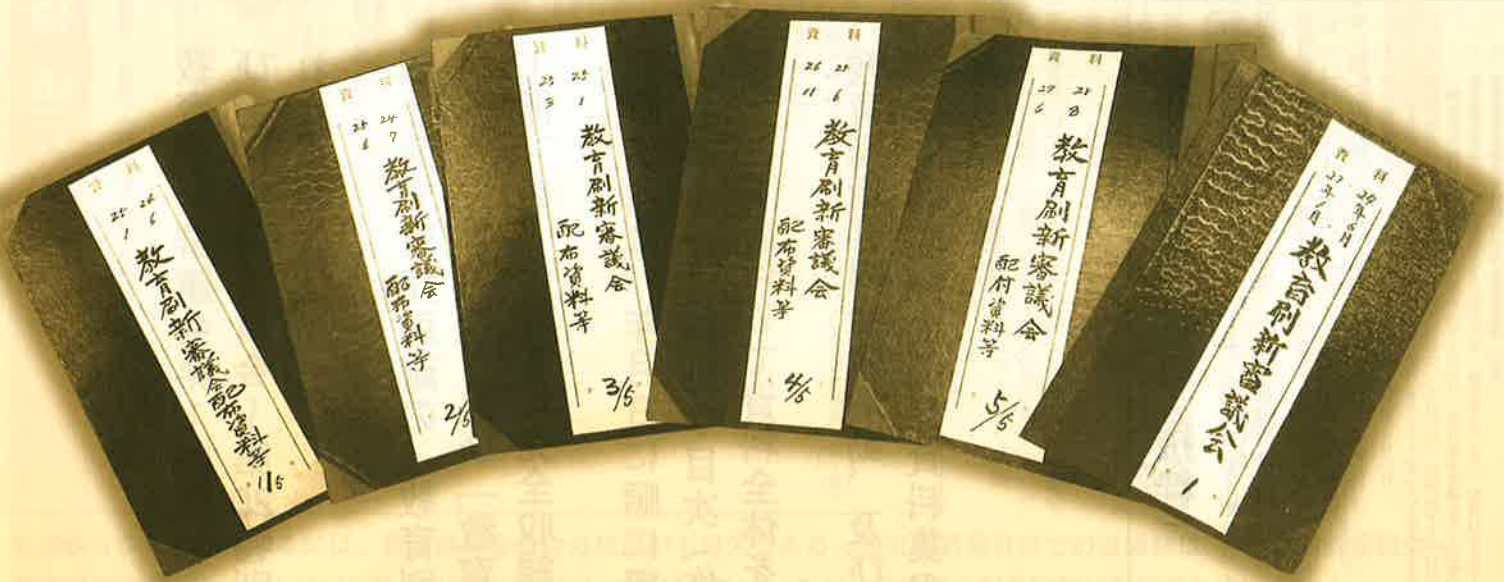 資料
24 6
25 1
教育刷新審議会配布資料等
1/5
資料
24 7
25 6
教育刷新審議会
配布資料等
2/5
資料
25 1
25 3
教育刷新審議会
配布資料等
3/5
資料
25 6
26 11
教育刷新審議会
配布資料等
4/5
資料
25 8
27 6
教育刷新審議会
配付資料等
5/5
資料
24年6月
27年1月
教育刷新審議会
1